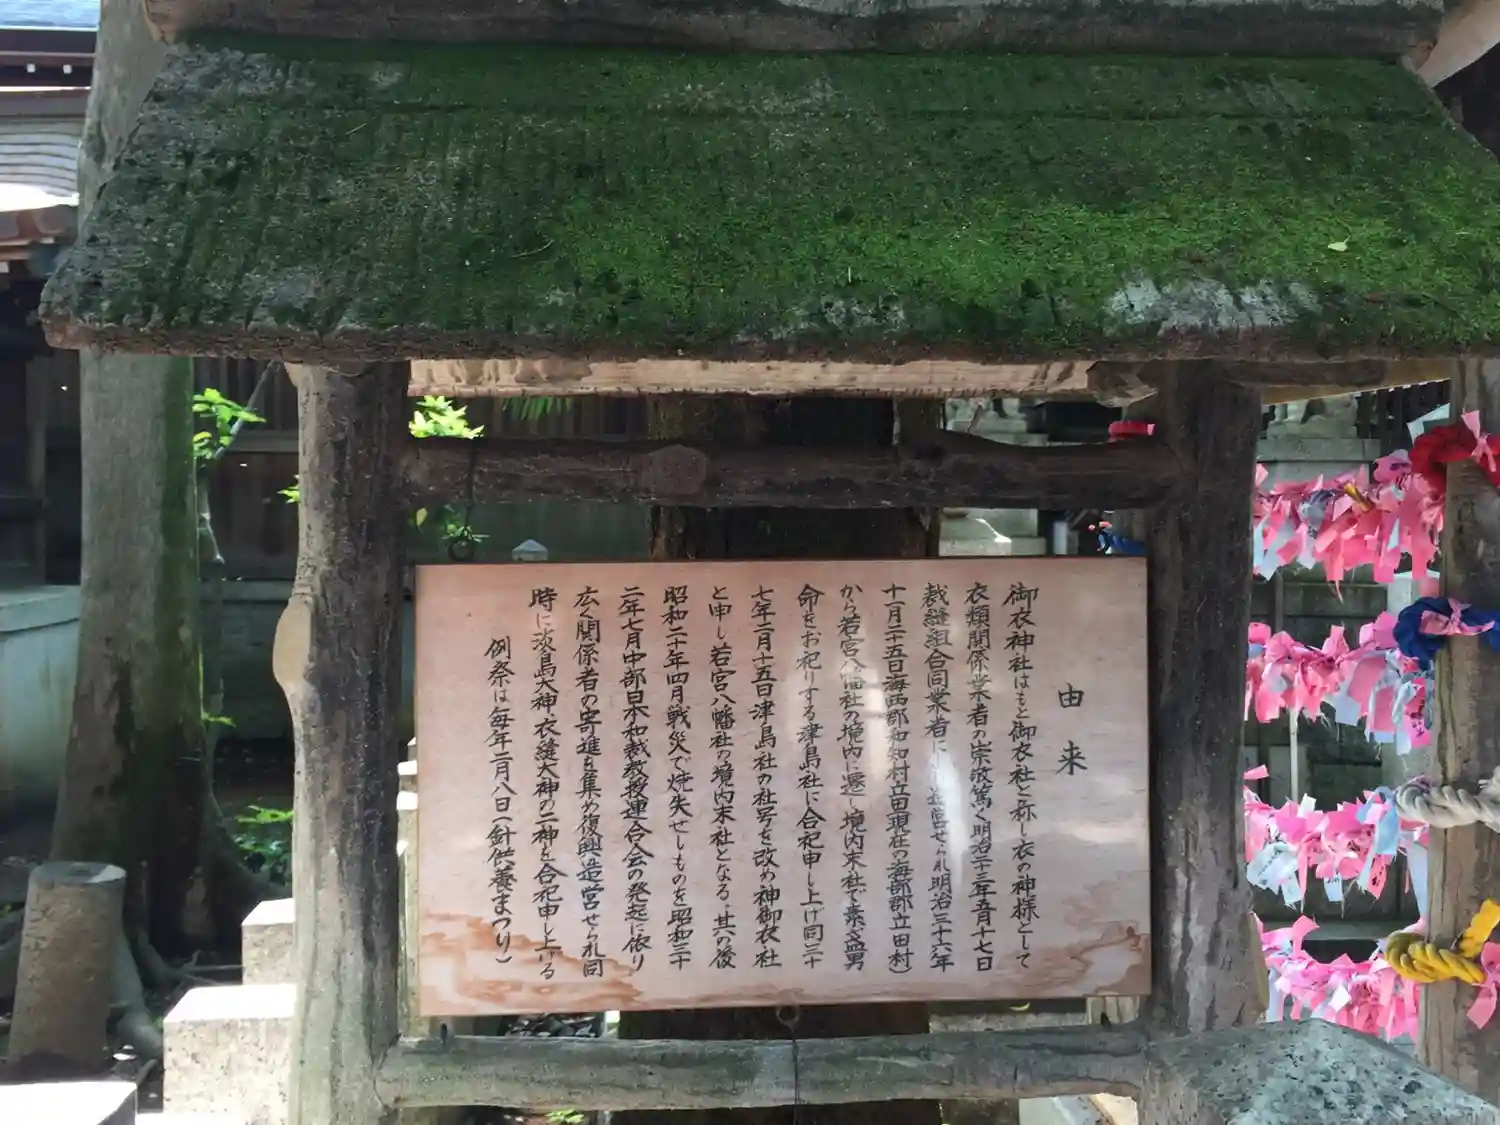 由来
御衣神社はもと御衣社と称し衣の神様として
衣類関係業者の崇敬篤く明治二十三年五月十七日
裁縫組合同業者に造営せられ明治三十六年
十一月二十五日海西郡和村立田現在の海部郡立田村)
から若宮八幡社の境内に遷し境内末社で素盞男
命をお祀りする津島社に合祀申し上げ同三十
七年二月十五日津島社の社号を改め神御衣社
と申し若宮八幡社の境内末社となる。其の後
昭和二十年四月戦災で焼失せしものを昭和三十
二年七月中部日本和裁教授連合会の発起に依り
広く関係者の寄進を集め復興造営せられ同
時に淡島大神、衣縫大神の二神を合祀申し上げる
例祭は毎年二月八日(針供養まつり)